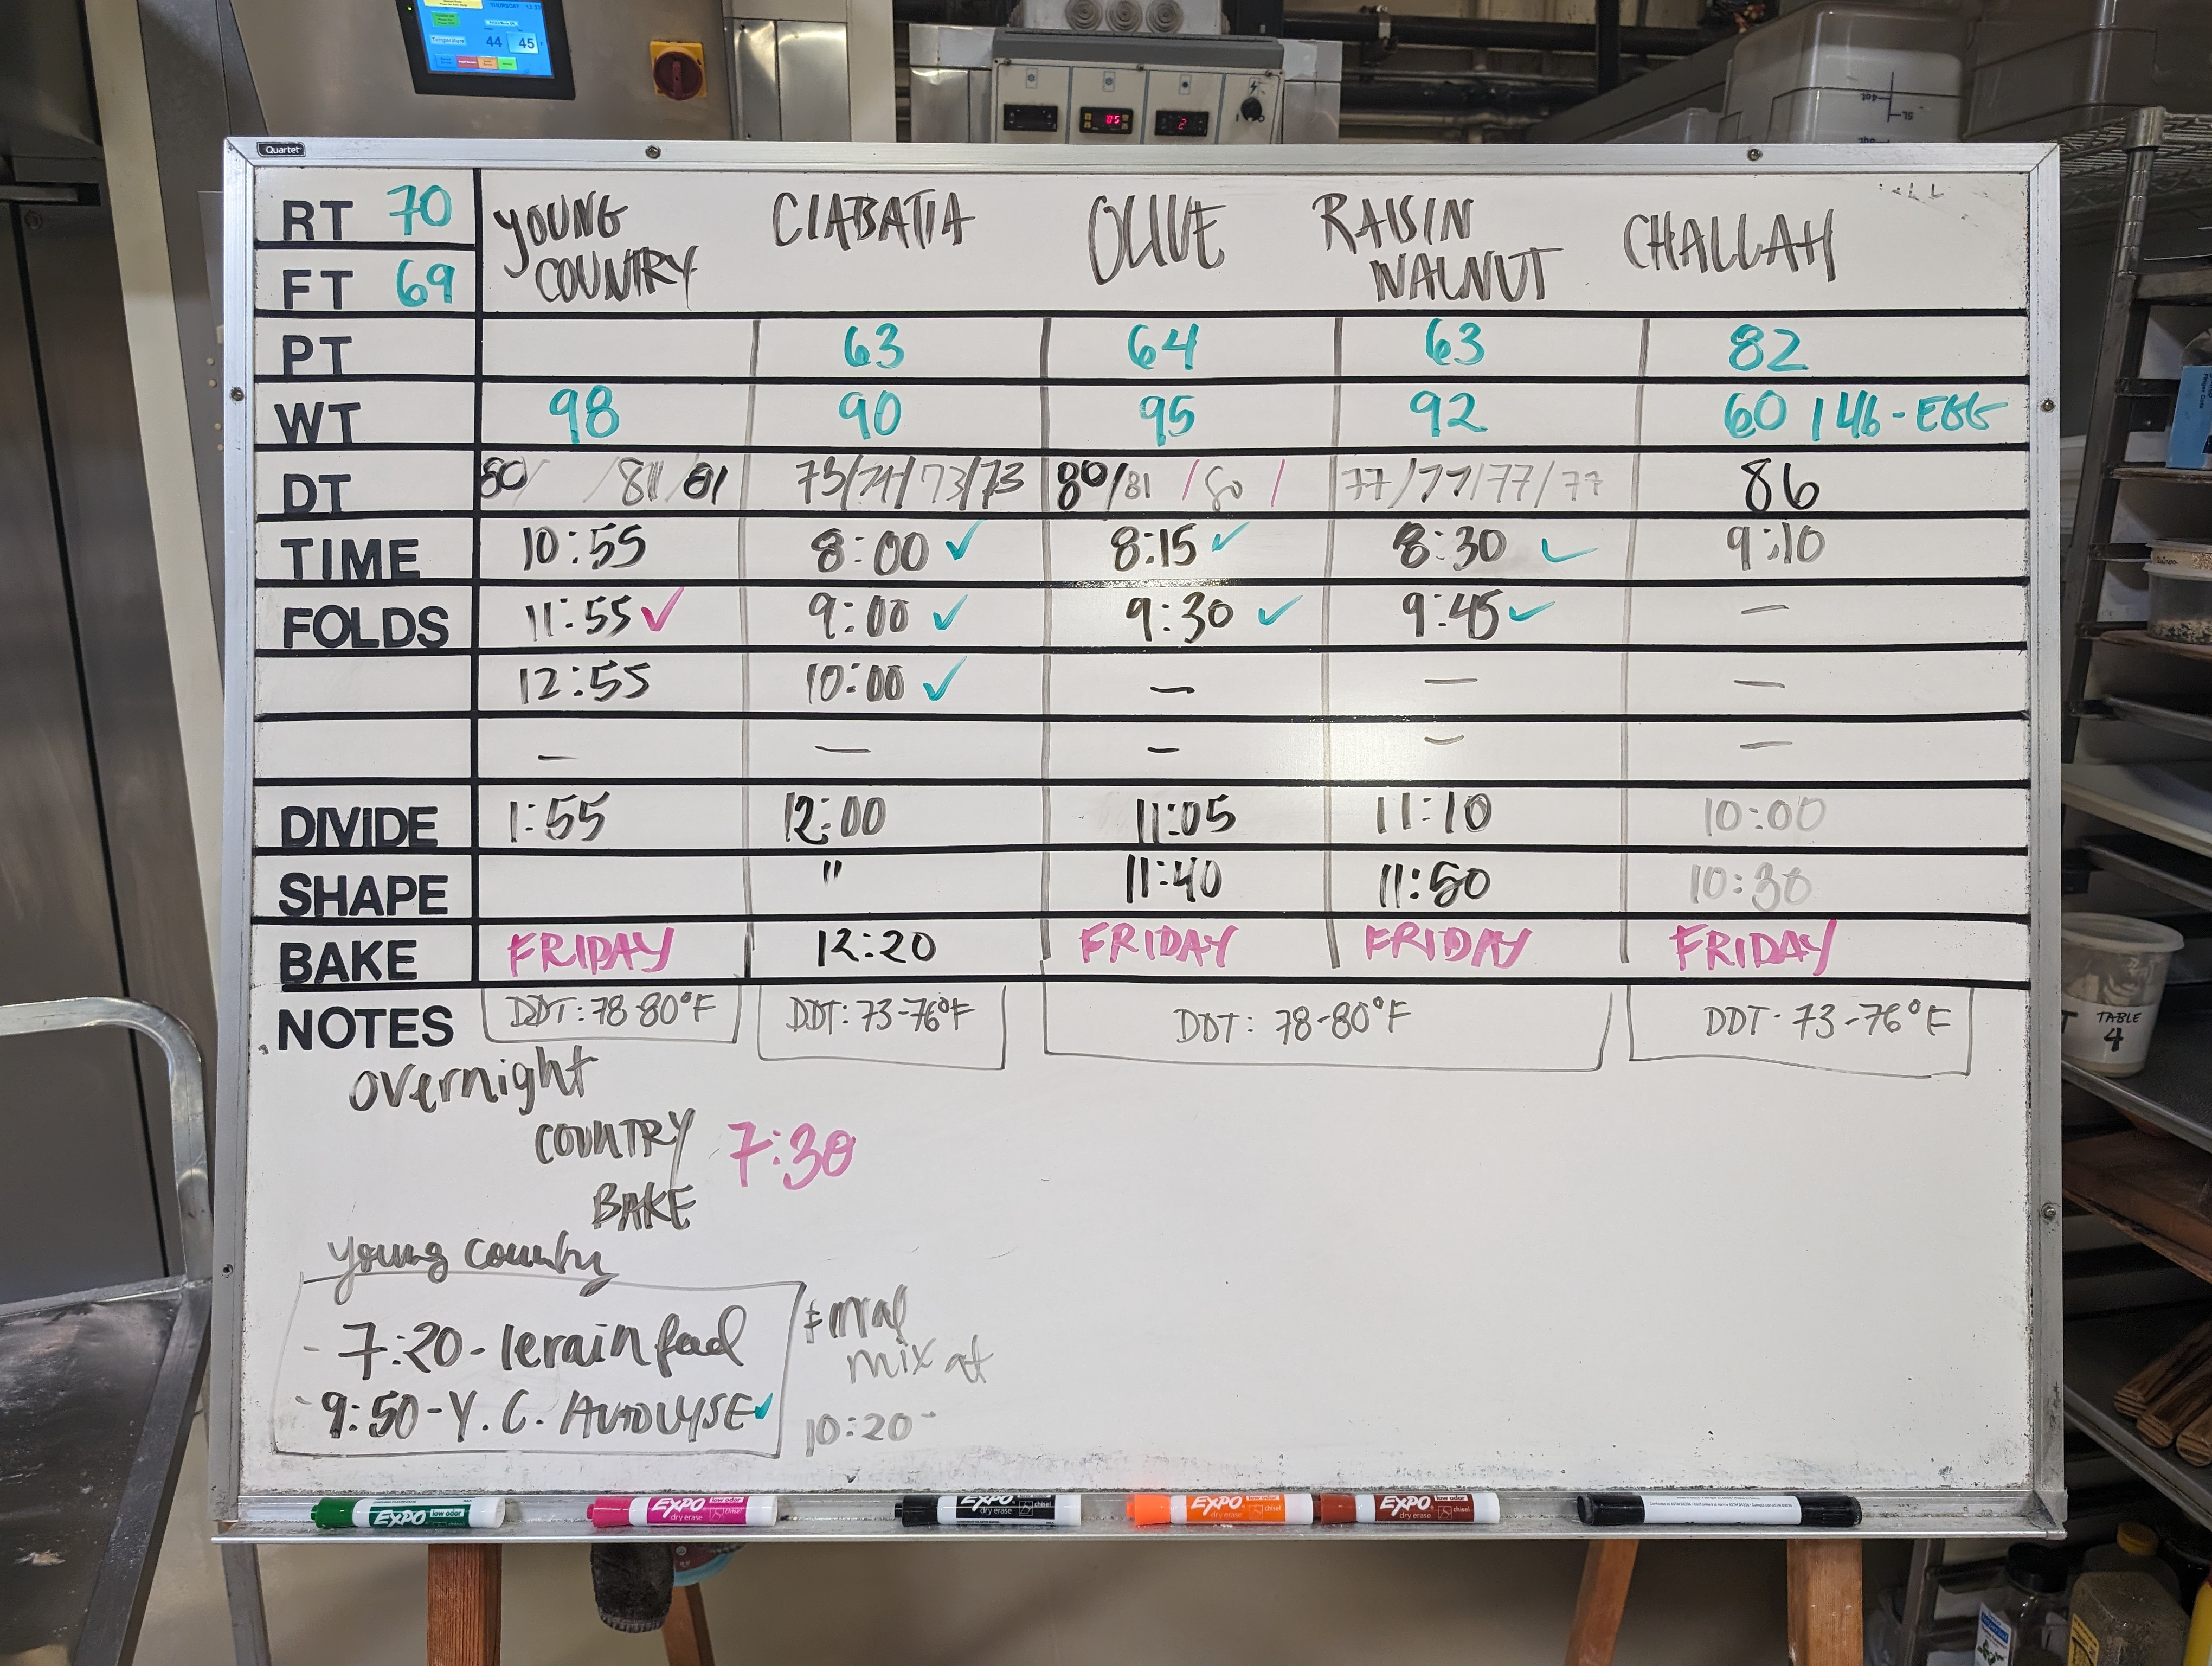 THURSDAY
Temperature 44 45
Quartet
RT 70
FT 69
YOUNG COUNTRY CIABATTA OLIVE RAISIN WALNUT CHALLAH
PT 63 64 63 82
WT 98 90 95 92 60 / 46 - EGG
DT 80/ /81/81 73/74/73/73 80/81 /80 / 77/77/77/77 86
TIME 10:55 8:00 ✓ 8:15 ✓ 8:30 ✓ 9:10
FOLDS 11:55 ✓ 9:00 ✓ 9:30 ✓ 9:45 ✓ —
12:55 10:00 ✓ — — —
— — — — —
DIVIDE 1:55 12:00 11:05 11:10 10:00
SHAPE " 11:40 11:50 10:30
BAKE FRIDAY 12:20 FRIDAY FRIDAY FRIDAY
NOTES DDT: 78-80°F DDT: 73-76°F DDT: 78-80°F DDT- 73-76°F
overnight
COUNTRY 7:30
BAKE
young country
- 7:20 - levain feed
- 9:50 - Y.C. AUTOLYSE ✓
Final
mix at
10:20
TABLE
4
EXPO low odor
EXPO low odor dry erase chisel
EXPO dry erase chisel
EXPO low odor dry erase chisel
EXPO low odor dry erase chisel